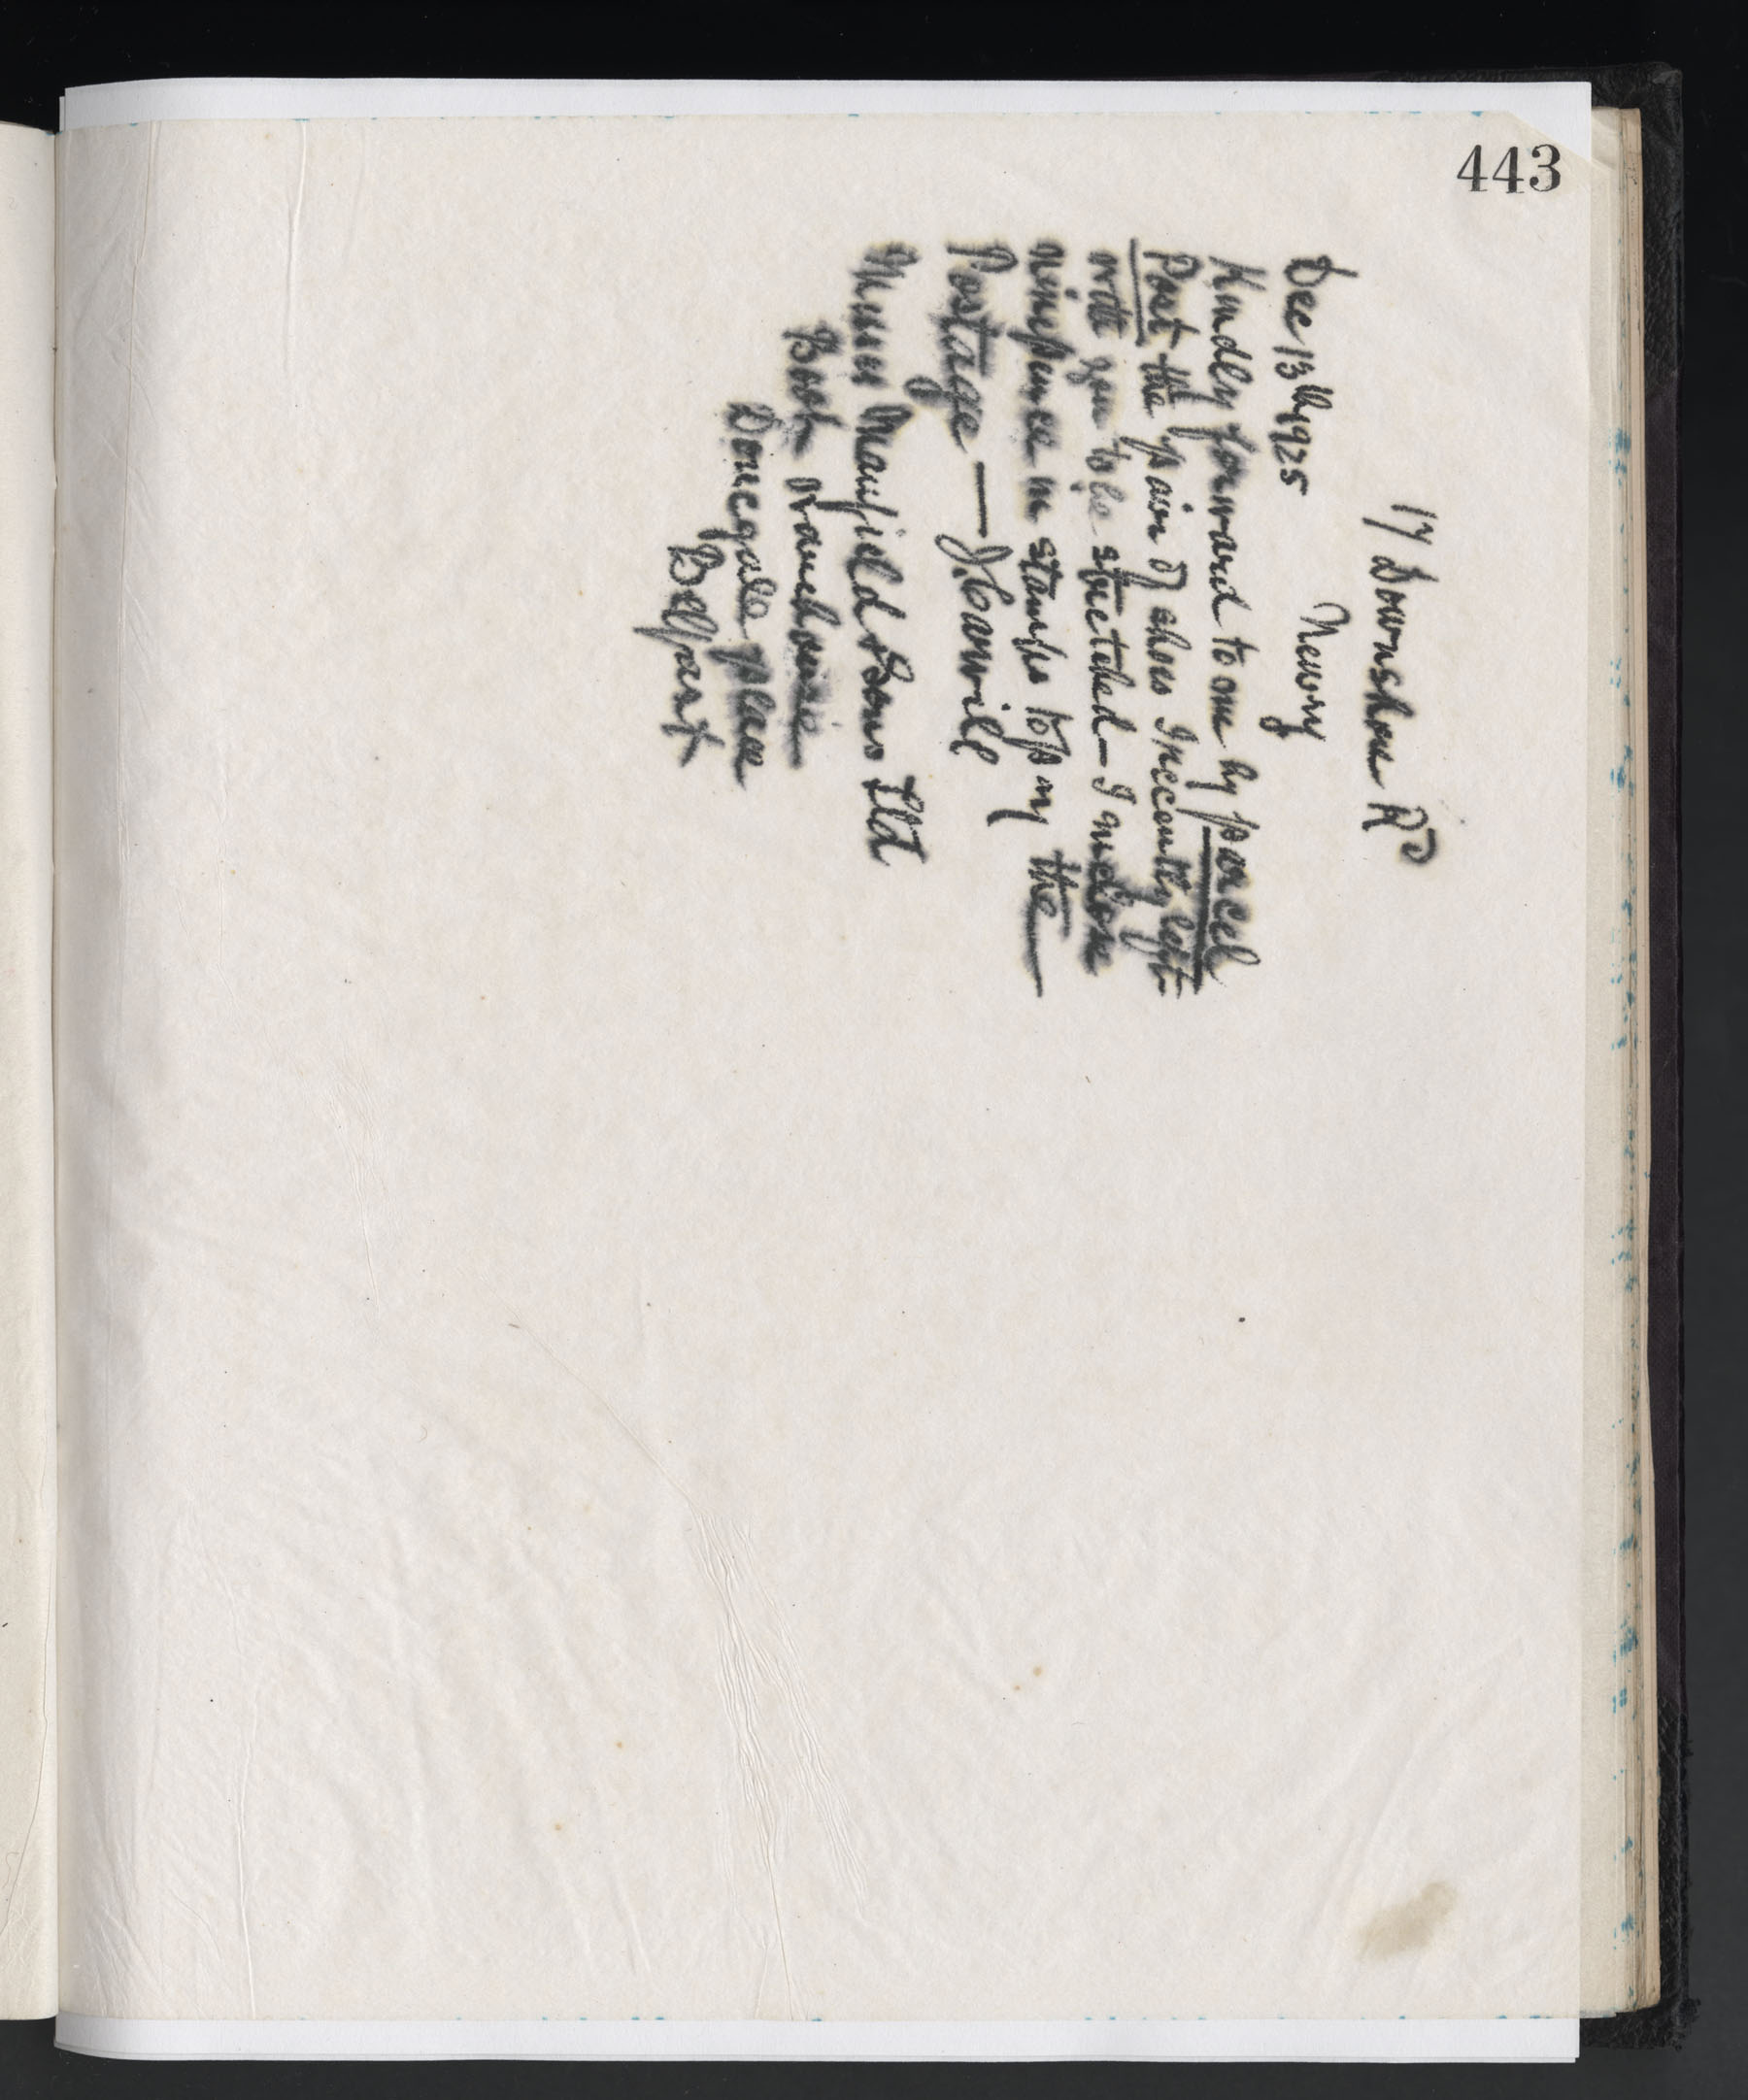 443
17 Downshire Rd
Newry
Dec 13th 1925
Kindly forward to me by parcel
Post the pair of shoes I recently left
with you to be stretched – I enclose
ninepence in stamps to pay the
Postage — J. Carvill
Messrs Manfield & Sons Ltd
Boot Warehouse
Donegall place
Belfast